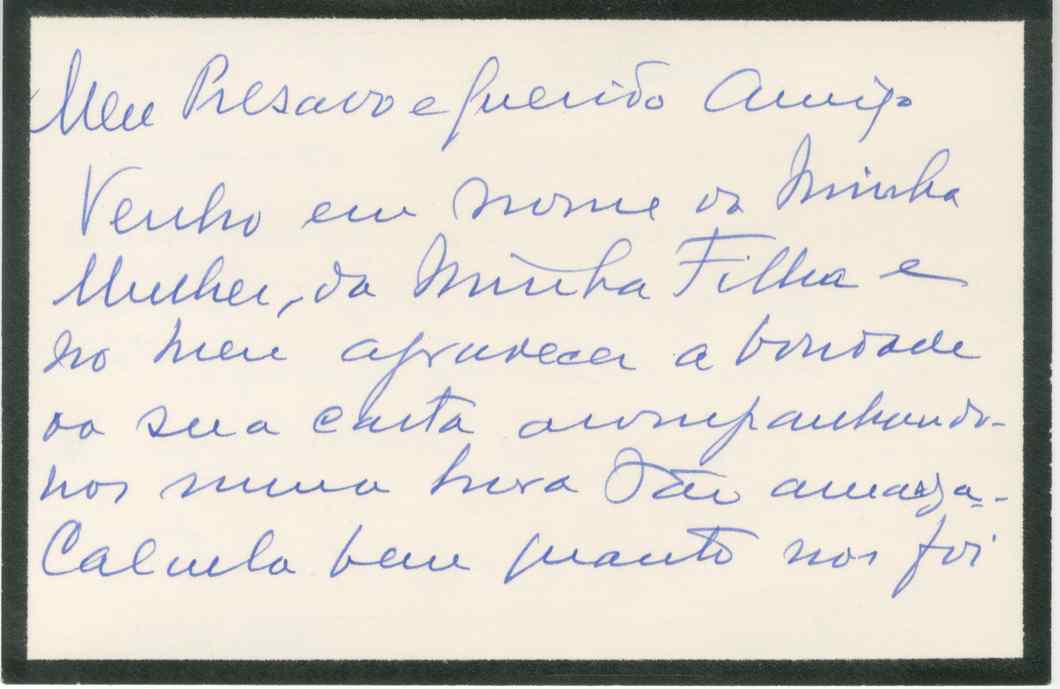 Meu Presado e Querido Amigo
Venho em nome da Minha
Mulher, da Minha Filha e
no meu agradecer a bondade
da sua carta acompanhando-
nos numa hora tão amarga.
Calcula bem quanto nos foi